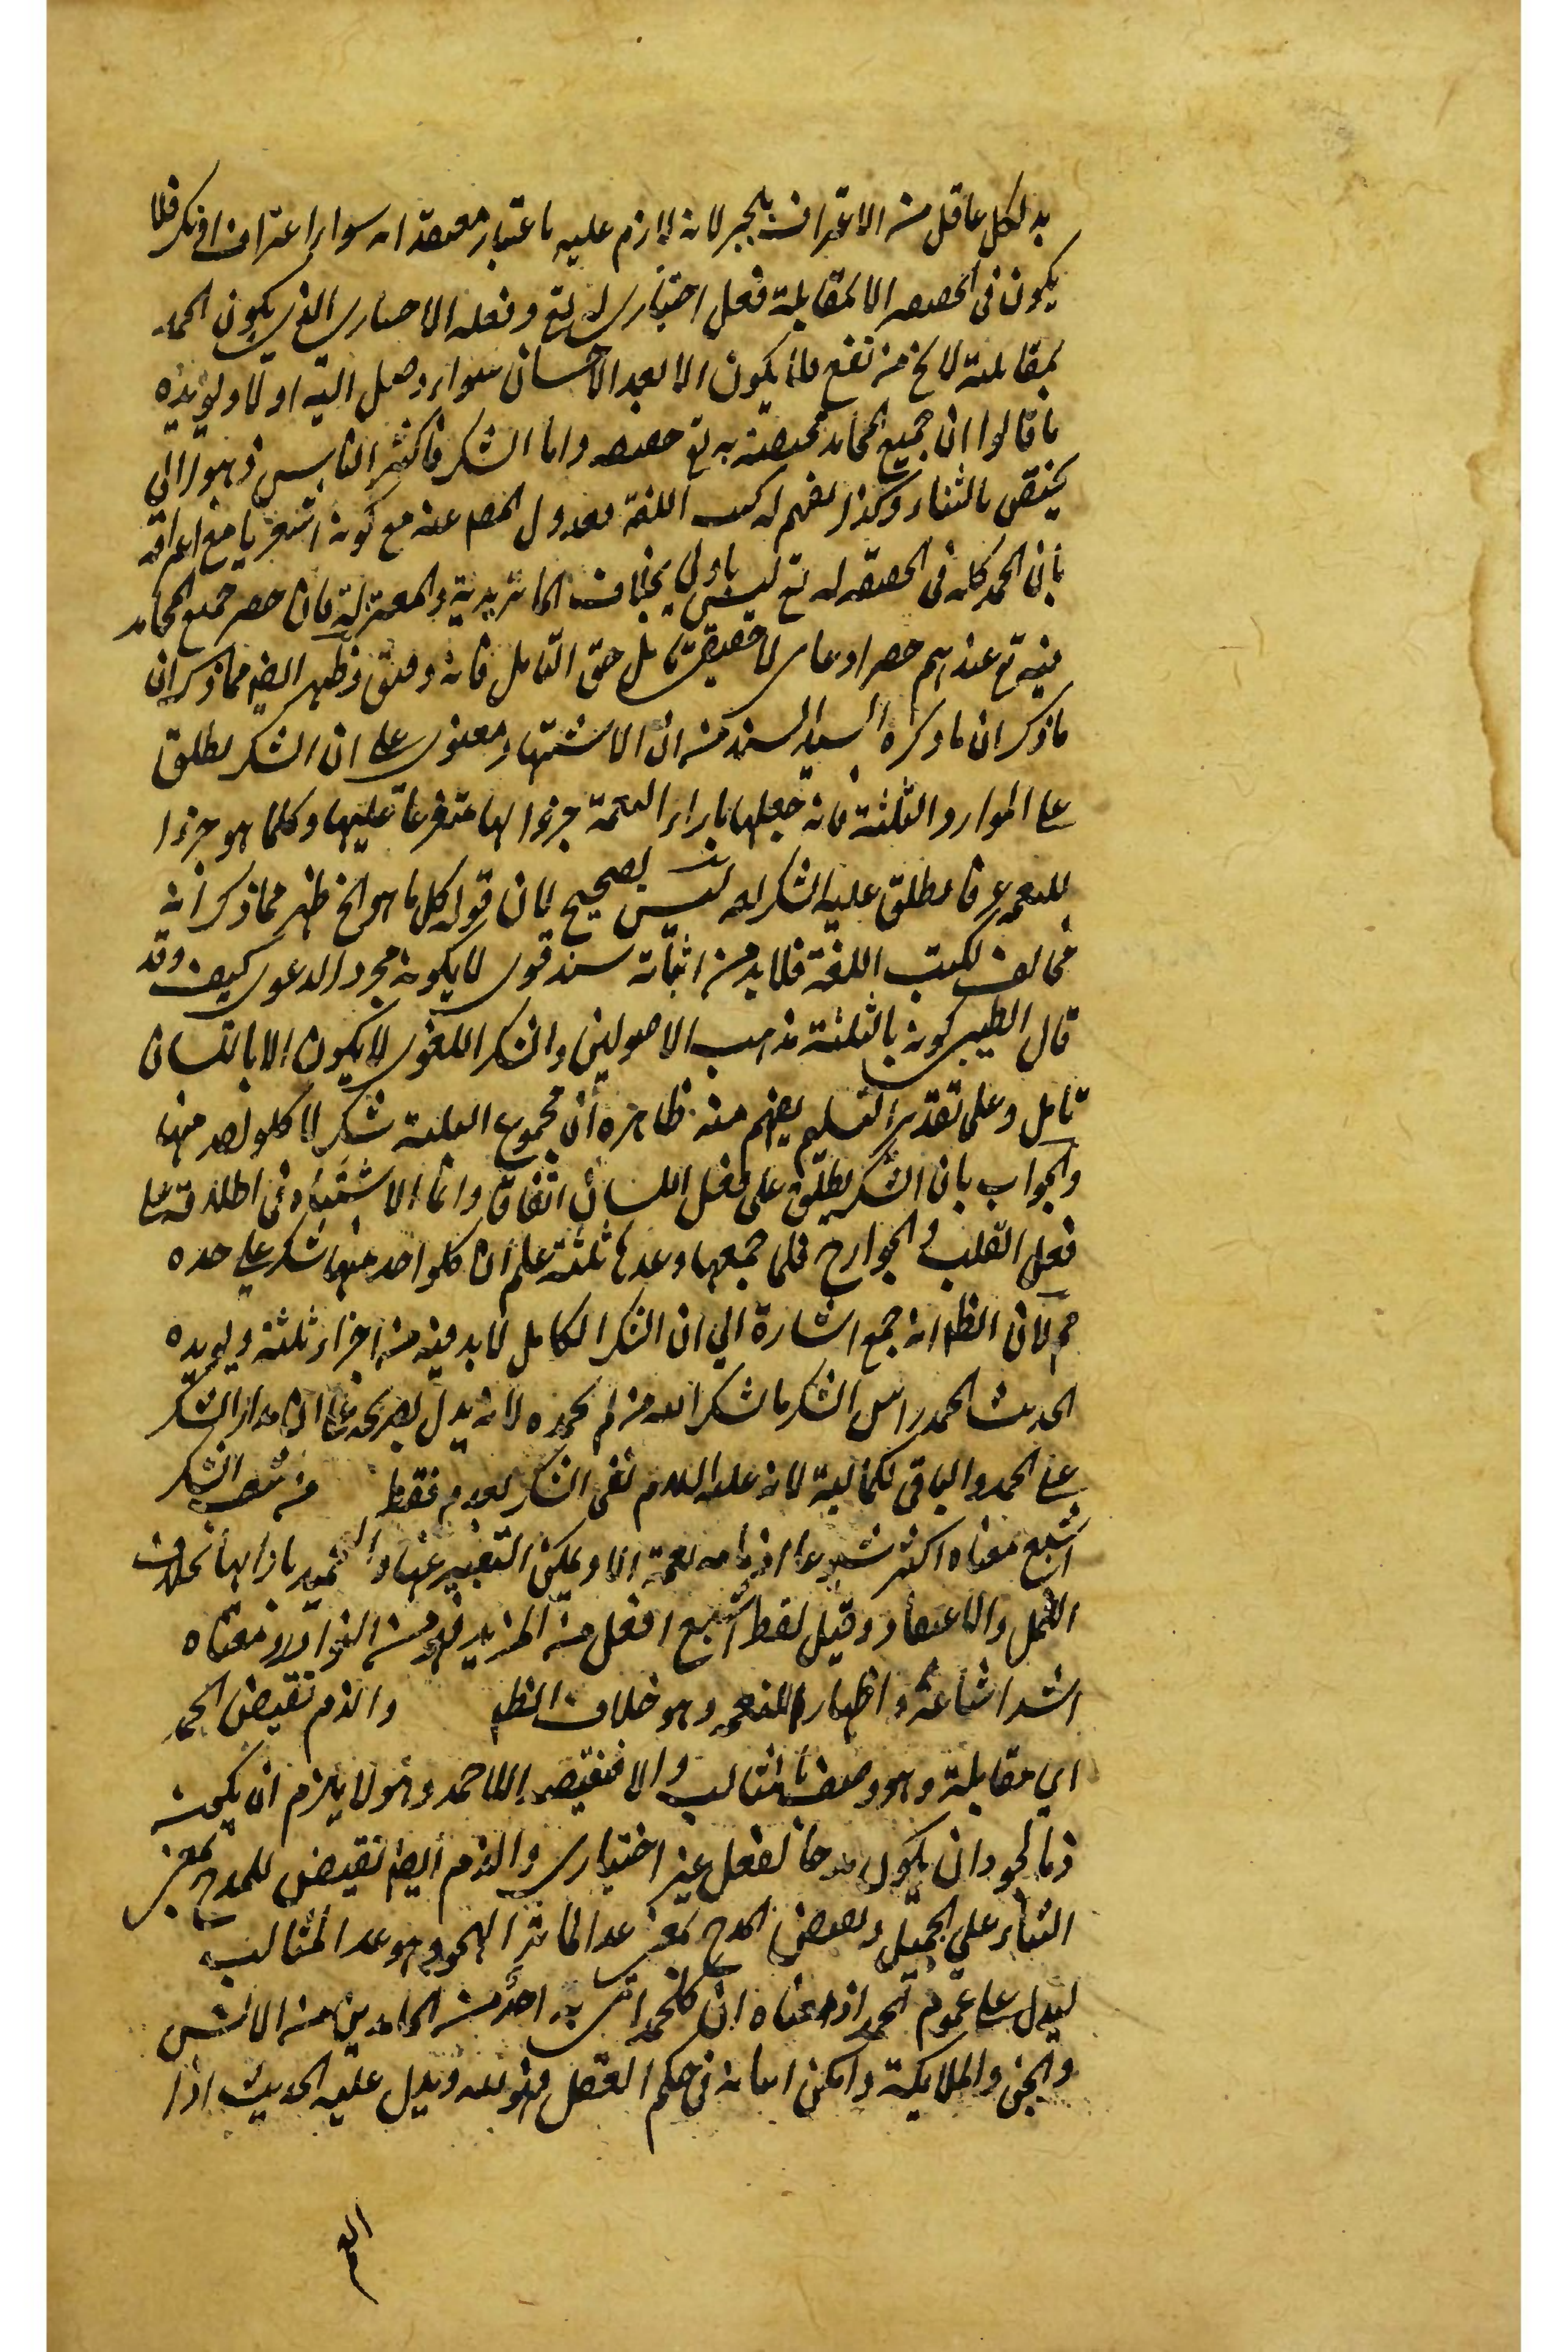 بد لكل عاقل من الاعتراف بالجبر لانه لازم عليه باعتبار معتقداته سواء اعترف او نكر فلا
يكون في الحقيقة الا لمقابلة فعل اختياري له تع وفعله الاختياري الذي يكون الحمد
بمقابلته لا يخ من نفع فلا يكون الا بعد الاحسان سواء وصل اليه او لا ويؤيده
ما قالوا ان جميع المحامد مختصة به تع حقيقة واما الشكر فاكثر الناس ذهبوا الى
يختص بالثناء وكذا يفهم من كتب اللغة فعدول المص عنه مع كونه اشعريا مع اعترافه
بان الحمد كله في الحقيقة له تع ليس باولى بخلاف الماتريدية والمعتزلة فان حصر جميع المحامد
فيه تع عندهم حصر ادعائي لا حقيقي تأمل حق التأمل فانه دقيق وظهر ايضا مما ذكر ان
ما ذكر ان ما ذكره السيد السند من ان الاستشهاد معنوي على ان الشكر يطلق
على الموارد الثلثة فانه جعلها بازاء النعمة جزاء لها متفرعا عليها وكلما هو جزاء
للنعمة عرفا يطلق عليه الشكر لغة ليس بصحيح لان قوله كل ما هو الخ ظهر مما ذكر انه
مخالف لكتب اللغة فلا بد من اثباته سند قوي لا يكون مجرد الدعوى كيف وقد
قال الطيبي كونه بالثلثة مذهب الاصوليين والشكر اللغوي لا يكون الا باللسان
تأمل وعلى تقدير التسليم يفهم منه ظاهره ان مجموع الثلثة شكر لا كلواحد منها
والجواب بان الشكر يطلق على فعل اللسان اتفاقا وانما الاشتباه في اطلاقه على
فعل القلب والجوارح فلما جمعها وعدها ثلثة علم ان كلواحد منها شكر على حده
مم لان الظ انه جمع اشارة الى ان الشكر الكامل لا بد فيه من اجزاء ثلثة ويؤيده
الحديث الحمد راس الشكر ما شكر الله من لم يحمده لانه يدل بصريحه على ان مدار الشكر
على الحمد والباقي لكماليته لانه عليه السلام نفى الشكر بعدمه فقط من شعب الشكر
اشيع معناه اكثر شيوعا اذ ما من نعمة الا ويمكن التعبير عنها والتحميد بازائها بخلاف
العمل والاعتقاد وقيل لفظ اشيع افعل من المزيد فهو من النوادر ومعناه
اشد اشاعة واظهارا للنعمة وهو خلاف الظ والذم نقيض الحمد
اي مقابلة وهو وصف بالمثالب والا فنقيضه اللاحمد وهو لا يلزم ان يكون
ذما لجواز ان يكون مدحا لفعل غير اختياري والذم ايضا نقيض للمدح بمعنى
الثناء على الجميل ونقيض المدح بمعنى عد المآثر الهجو وهو عد المثالب
ليدل على عموم الحمد اذ معناه ان كل حمد اتى به احد من الحامدين من الانس
والجن والملايكة وامكن اتيانه في حكم العقل فهو لله ويدل عليه الحديث اذا